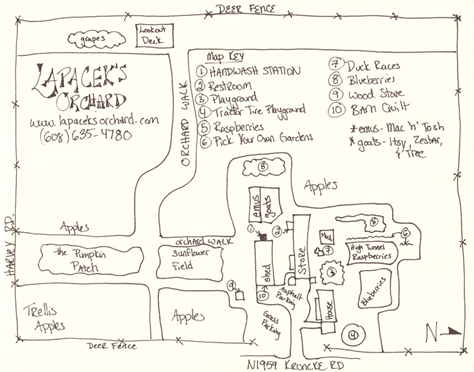 DEER FENCE
grapes
Lookout
Deck
LAPACEK'S
ORCHARD
www.lapaceksorchard.com
(608) 635-4780
ORCHARD WALK
Map Key
1 HANDWASH STATION
2 RESTROOM
3 Playground
4 Tractor Tire Playground
5 Raspberries
6 Pick Your Own Gardens
7 Duck Races
8 Blueberries
9 Wood Store
10 Barn Quilt
*emus - Mac 'n' Tosh
*goats - Itsy, Zestar,
& Tree
HARVEY RD.
Apples
the Pumpkin
Patch
ORCHARD WALK
Sunflower
Field
Apples
emus
goats
1
2
Store
Shed
7
High Tunnel
Raspberries
Blueberries
Asphalt
Parking
House
4
Grass
Parking
Trellis
Apples
Apples
DEER FENCE
N1959 KRONCKE RD
N